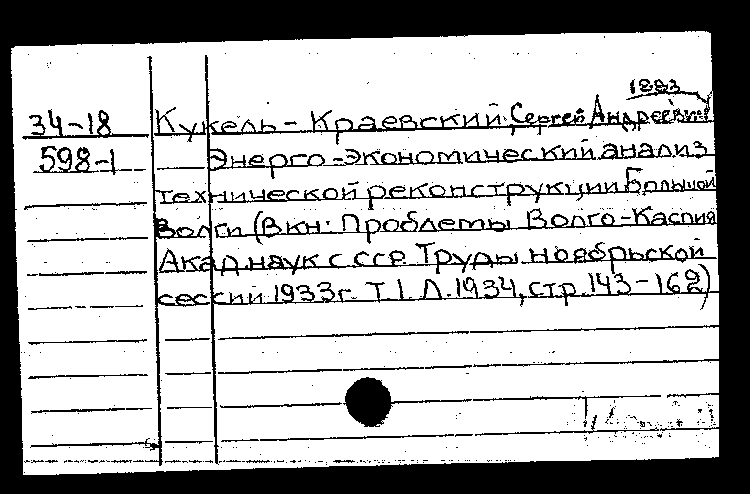 1883
34-18 Кукель-Краевский, Сергей Андреевич
598-1 Энерго-экономический анализ
технической реконструкции Большой
Волги (В кн: Проблемы Волго-Каспия
Акад. наук СССР Труды ноябрьской
сессии 1933г. Т I Л. 1934, стр. 143-162)